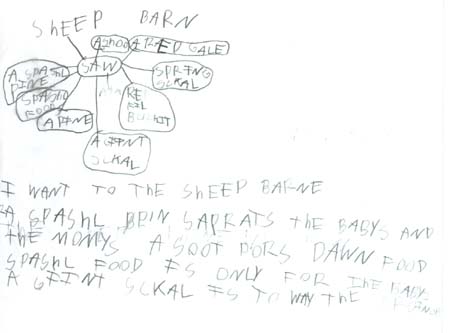 SHEEP BARN
ASHOO
A RAED GALE
SAW
A SPASHL
PINE
SPASHL
FOODS
A PINE
SPRING
SCKAL
A GIINT
SCKAL
I WANT TO THE SHEEP BARNE
A SPASHL BRIN SAPRATS THE BABYS AND
THE MOMYS A SOOT PORS DAWN FOOD
SPASHL FOOD IS ONLY FOR THE BABYS
A GIINT SCKAL IS TO WAY THE